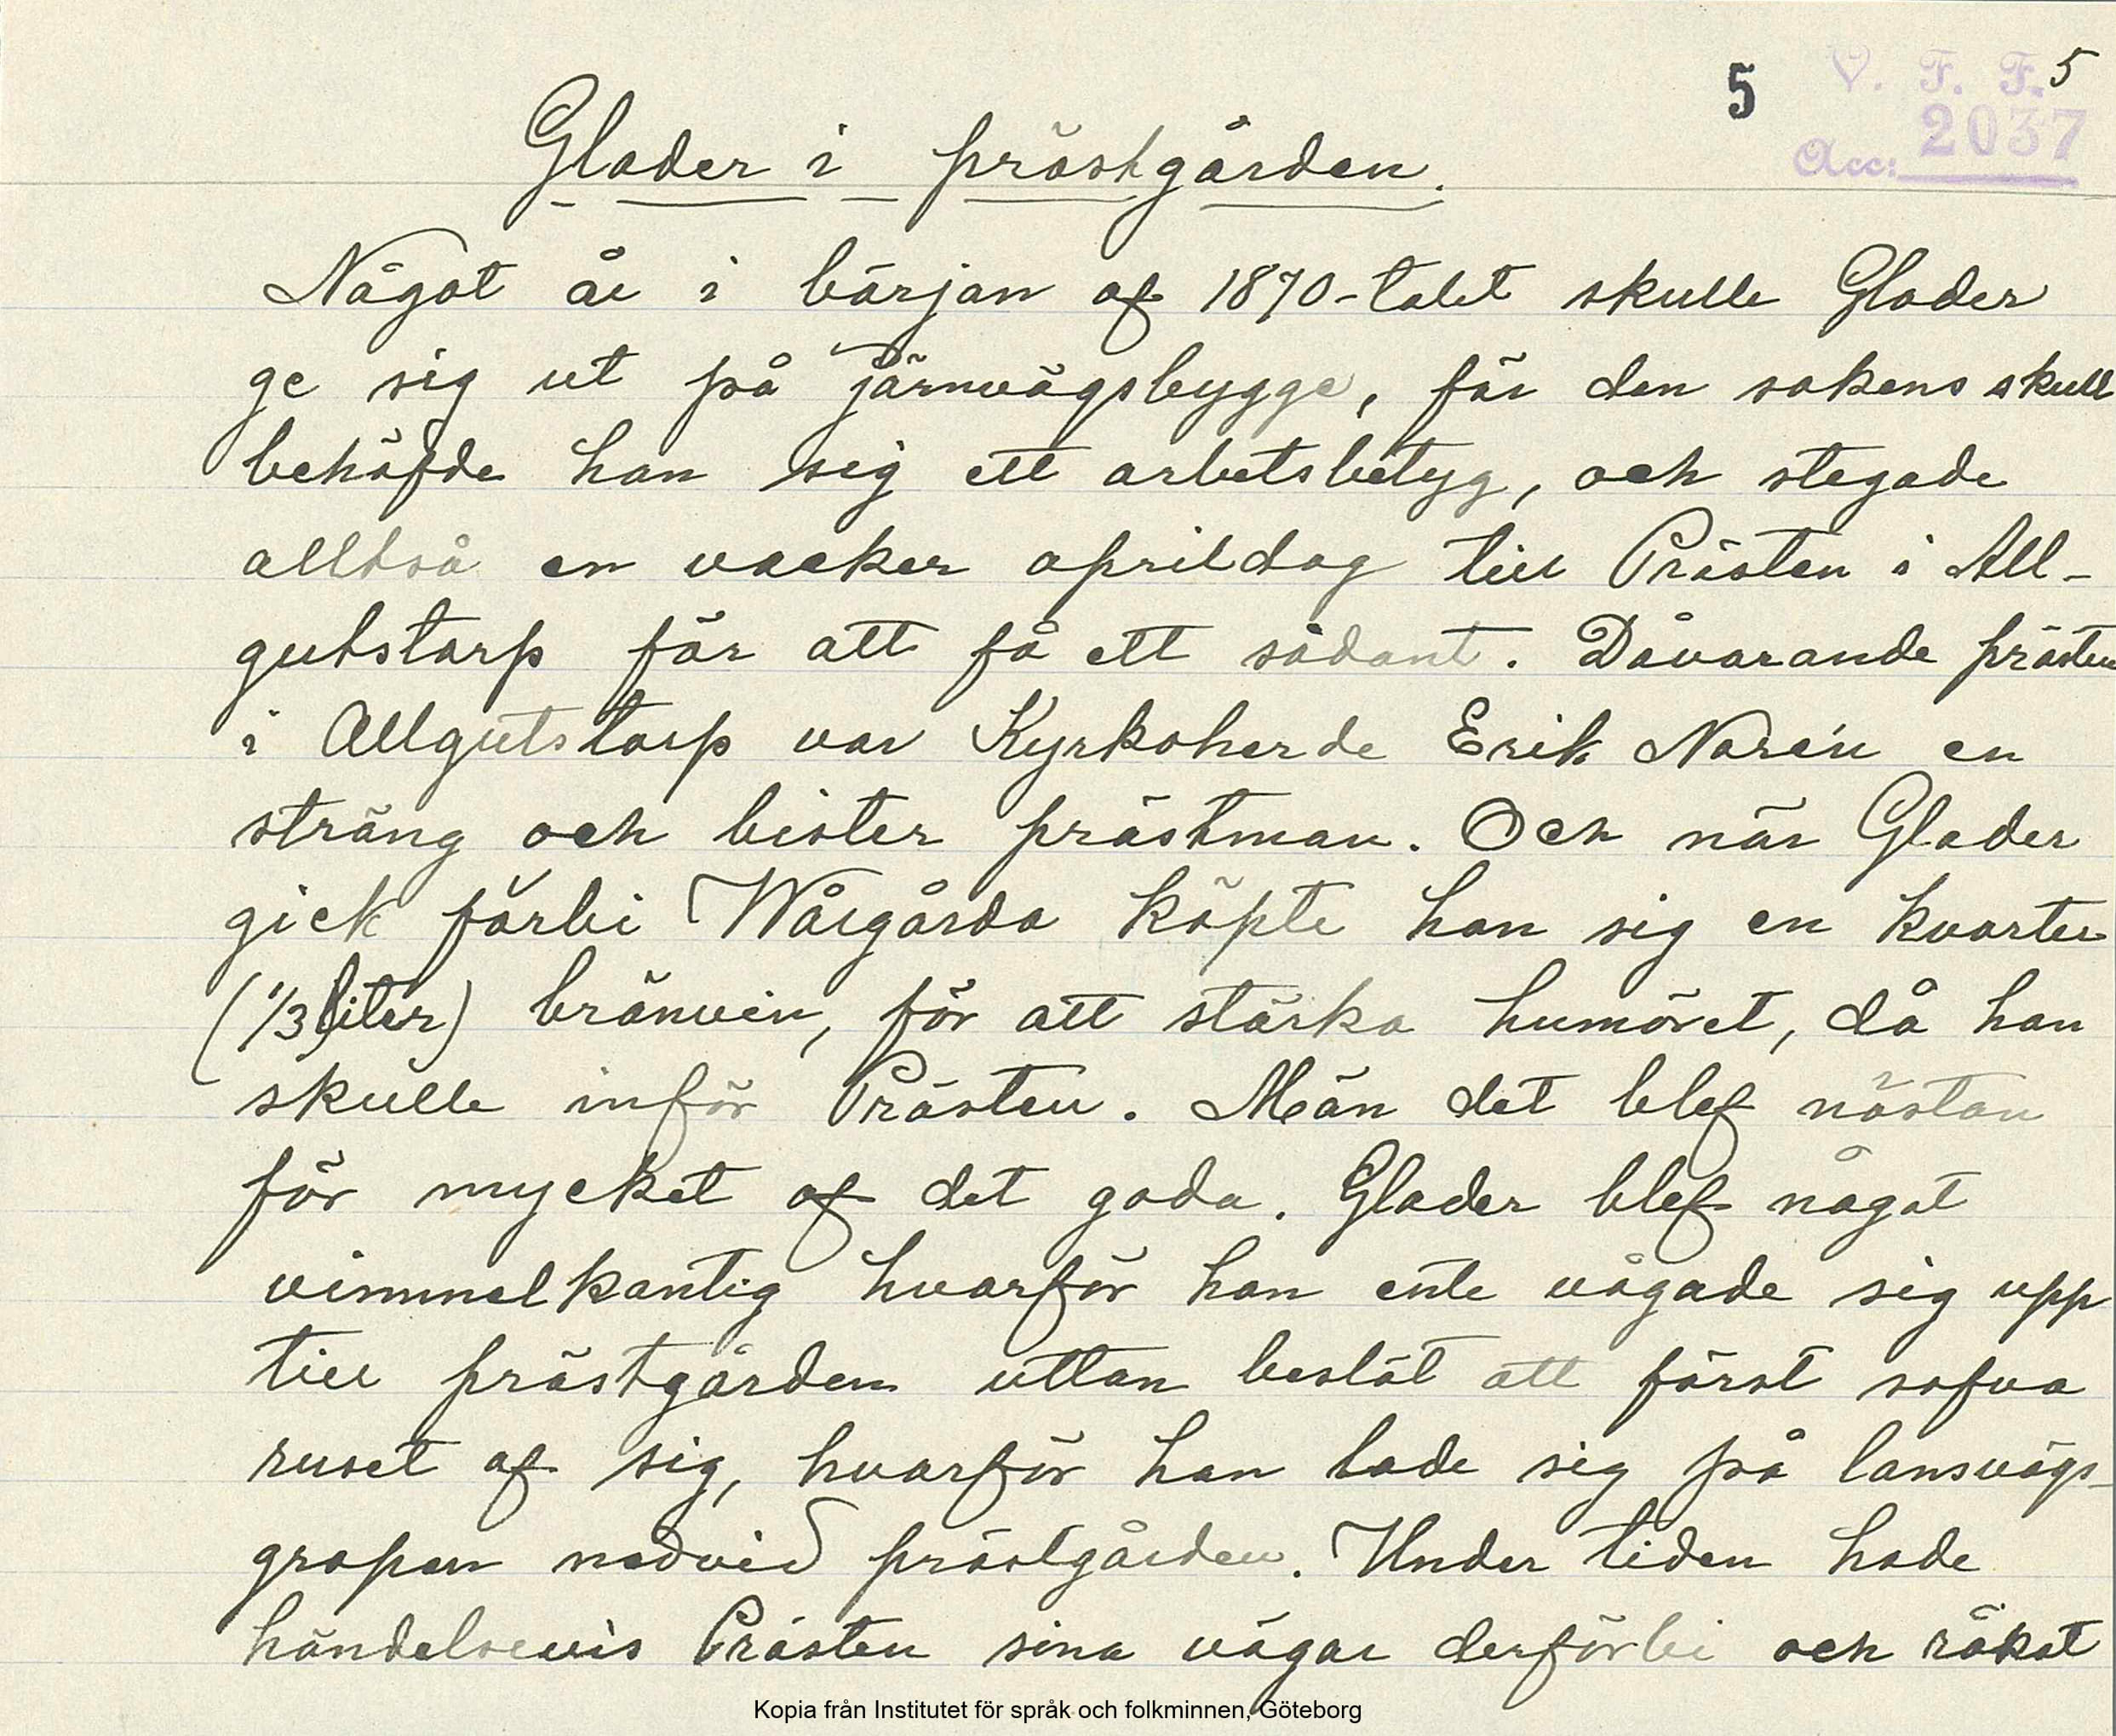 5 V. F. F. 5
Acc: 2037
Glader i prästgården.
Något år i början af 1870-talet skulle Glader
ge sig ut på järnvägsbygge, för den sakens skull
behöfde han sig ett arbetsbetyg, och stegade
alltså en vacker aprildag till Prästen i All-
gutstorp för att få ett sådant. Dåvarande prästen
i Allgutstorp var Kyrkoherde Erik Norén en
sträng och bister prästman. Och när Glader
gick förbi Wårgårda köpte han sig en kvarter
(1/3 liter) bränvin, för att stärka humöret, då han
skulle inför Prästen. Män det blef nästan
för mycket af det goda. Glader blef något
vimmelkantig hvarför han ente vågade sig upp
till prästgården uttan beslöt att först sofva
ruset af sig, hvarför han lade sig på lansvägs-
gropen nedvid prästgården. Under tiden hade
händelsevis Prästen sina vägar derförbi och råkat
Kopia från Institutet för språk och folkminnen, Göteborg